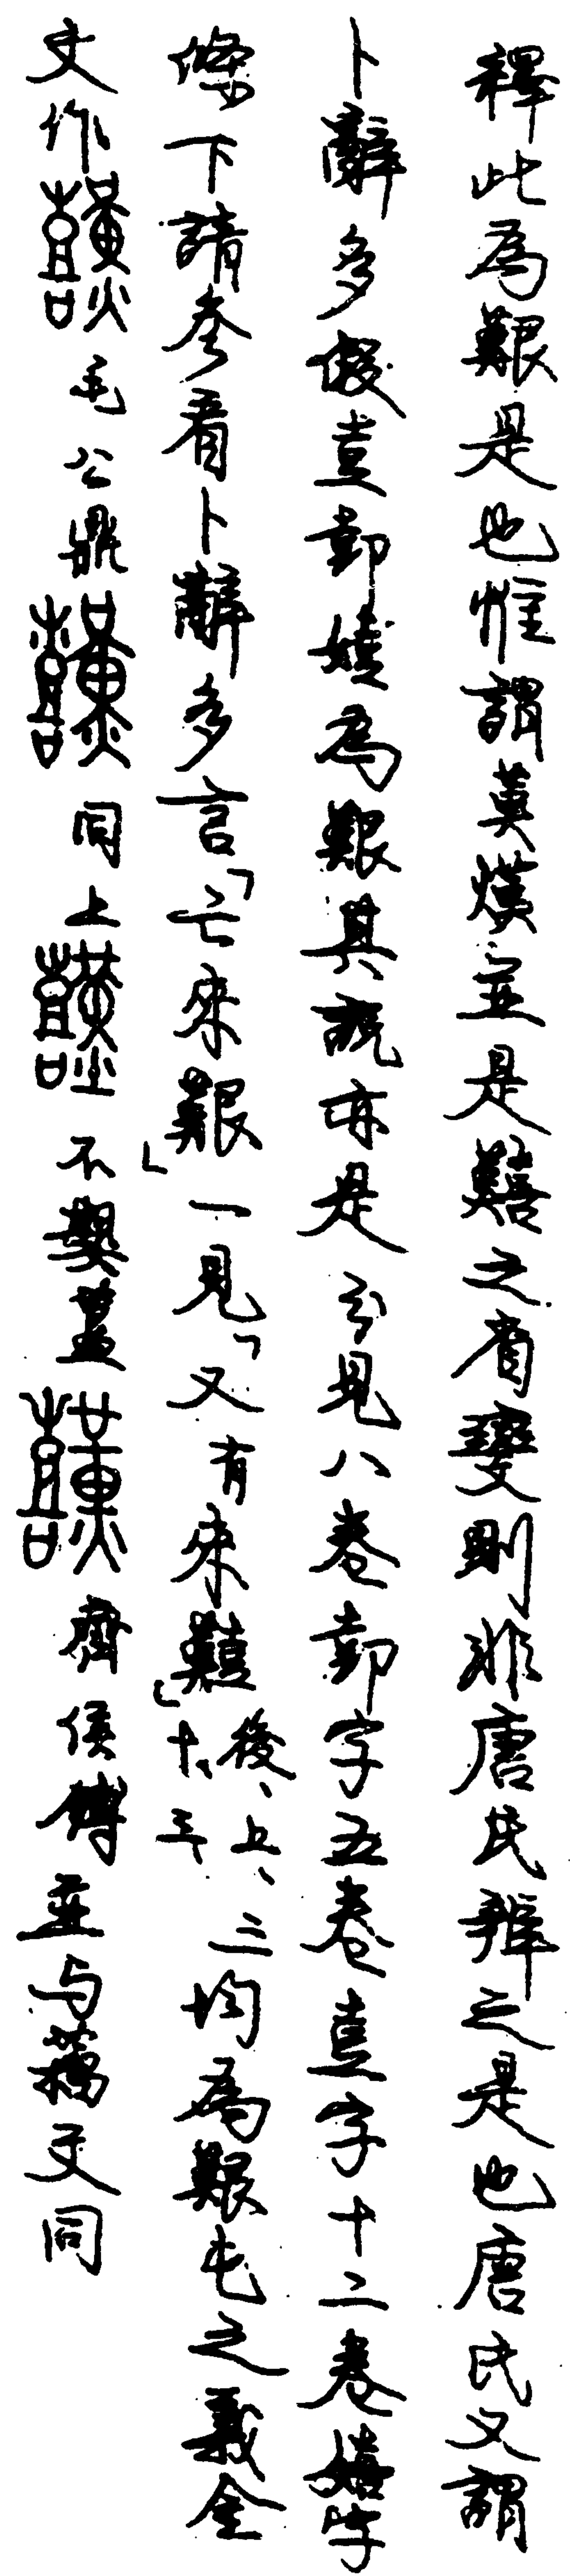 釋此為艱是也惟謂堇熯並是囏之省變則非唐氏辯之是也唐氏又謂
卜辭多假壴卸嬉為艱其說亦是分見八卷卸字五卷壴字十二卷嬉字
條下請參看卜辭多言「亡來艱」一見「又有來囏」後、上、三十、三均為艱屯之義金
文作毛公鼎同上不𡢁簋齊侯鎛並与籀文同